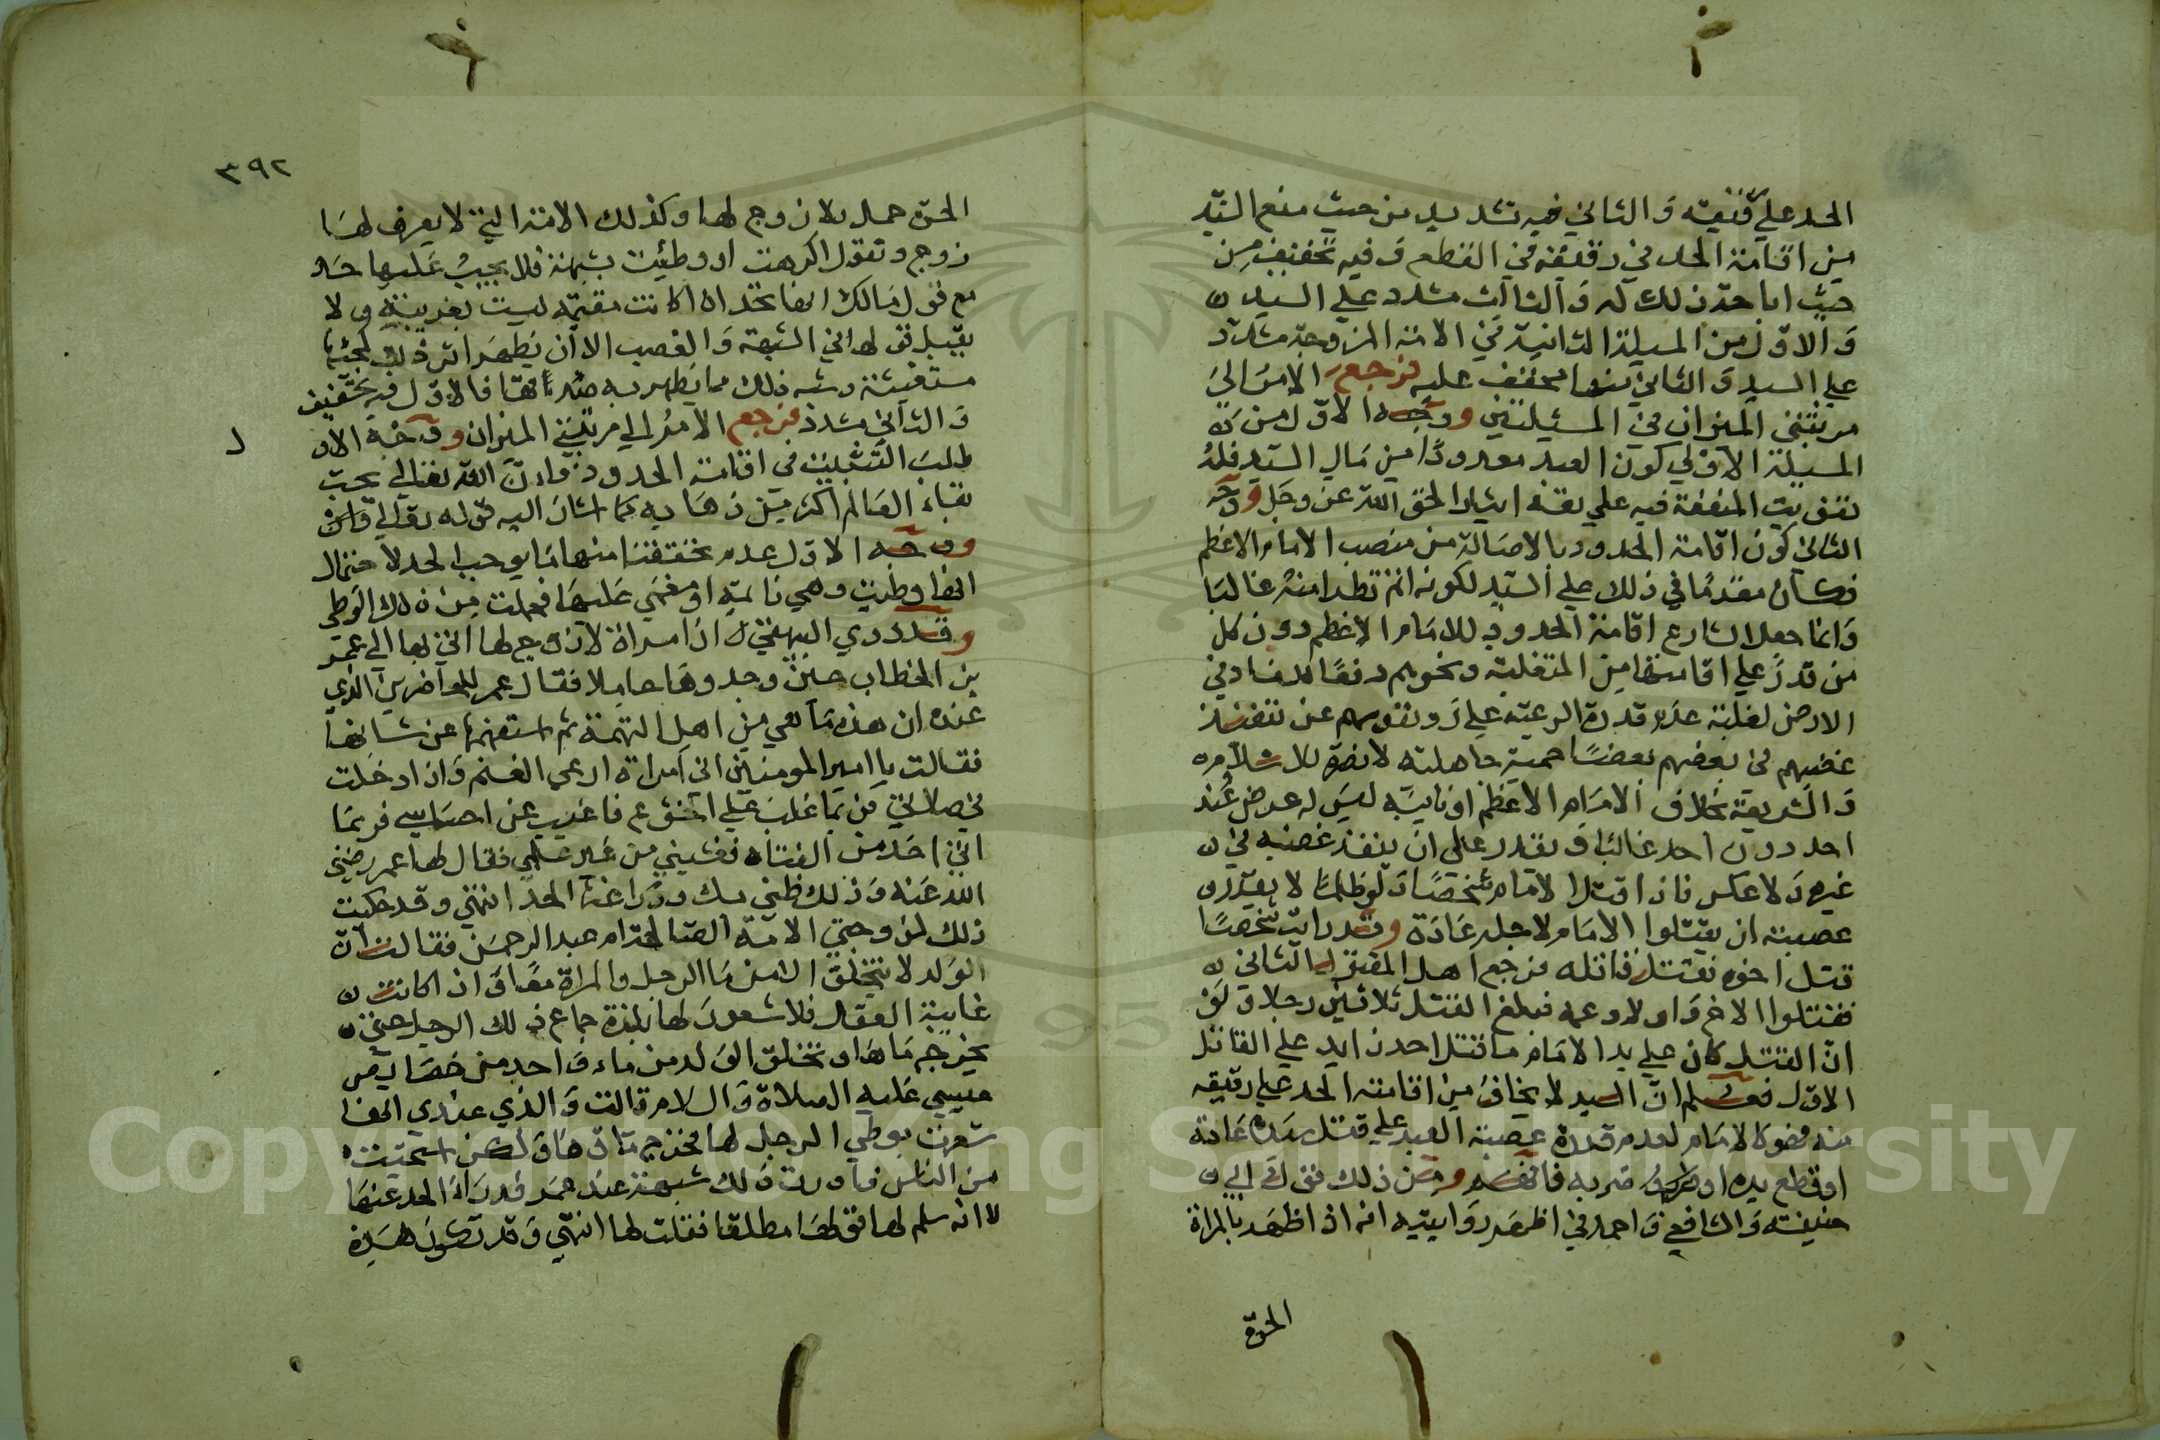 الحد على قنه والثاني فيه تشديد من حيث منع السيد
من اقامة الحد في رقيقه في القطع وفيه تخفيف من
حيث اباحة ذلك له والثالث مشدد على السيد
والاول من المسيلة الثانية في الامة المزوجة مشدد
على السيد والثاني منها مخفف عليه فرجع الامر الى
مرتبتي الميزان في المسئيلتين ووجه الاول من
المسيلة الاولى كون العبد معدودا من مال السيد فله
تفويت المنفعة فيه على نفسه ايثارا لحق الله عز وجل ووجه
الثاني كون اقامة الحدود بالاصالة من منصب الامام الاعظم
فكان مقدما في ذلك على السيد لكونه اتم نظرا منه غالبا
وانما جعل الشارع اقامة الحدود للامام الاعظم دون كل
من قدر على اقامتها من المتغلبة ونحوهم دفعا للفساد في
الارض لغلبة عدم قدرة الرعية على رد نفوسهم عن تنفيذ
غضبهم في بعضهم بعضا حمية جاهلية لا نصرة للاسلام
والشريعة بخلاف الامام الاعظم او نايبه ليس له غرض عند
احد دون احد غالبا ويقدر على ان ينفذ غضبه في
غيره ولا عكس فاذا قتل الامام شخصا ولو ظلما لا يقدر
عصبته ان يقتلوا الامام لاجله عادة وقد رايت شخصا
قتل اخوه فقتل قاتله فرجع اهل المقتول الثاني
فقتلوا الاخ واولاد عمه فبلغ القتل ثلاثين رجلا ولو
ان القتل كان على يد الامام ما قتل احد زايد على القاتل
الاول فعلم ان السيد لا يخاف من اقامة الحد على رقيقه
منه فهو كالامام لعدم قدرة عصبة العبد على قتل سيده عادة
او قطع يده او ضربه فافهم ومن ذلك قول ابي
حنيفة والشافعي واحمد في اظهر روايتيه انه اذا ظهر بالمراة
الحرة
٣٩٢
الحرة حمل ولا زوج لها وكذلك الامة التي لا يعرف لها
زوج وتقول اكرهت او وطئت بشبهة فلا يجب عليها حد
مع قول مالك انها تحد اذا كانت مقيمة ليست بغريبة ولا
يقبل قولها في الشبهة والغصب الا ان يظهر اثر ذلك لمجيئها
مستغيثة وشبه ذلك مما يظهر به صدقها فالاول فيه تخفيف
والثاني مشدد فرجع الامر الى مرتبتي الميزان ووجه الاول
طلب التثبت في اقامة الحدود وان الله تعالى يحب
بقاء العالم اكثر من ذهابه كما اشار اليه قوله تعالى
ووجه الاول عدم تحققنا منها ما يوجب الحد لاحتمال
انها وطيت وهي نايمة او مغمي عليها فحملت من ذلك الوطي
وقد روي البيهقي ان امراة لا زوج لها اتي بها الى عمر
بن الخطاب حين وجدوها حاملا فقال عمر للحاضرين الذي
عنده ان هذه ما هي من اهل التهمة ثم استفهمها عن شانها
فقالت يا امير المومنين اني امراة ارعى الغنم واذا دخلت
في صلاتي فربما غلب علي الخشوع فاغيب عن احساسي فربما
اتى احد من العتاة فغشيني من غير علمي فقال لها عمر رضي
الله عنه وذلك ظني بك ودرا عنها الحد انتهى وقد حكيت
ذلك لزوجتي الامة الصالحة ام عبد الرحمن فقالت ان
الولد لا يتخلق الا من ماء الرجل والمراة معا واذا كانت
غايبة العقل فلا شعور لها بلذة جماع ذلك الرجل حتى
يخرج ماؤها او تخلق الولد من ماء واحد من خصايص
عيسى عليه الصلاة والسلام قالت والذي عندي انها
شعرت بوطي الرجل لها فخرج ماؤها ولكن استحيت
من الناس فاورث ذلك شبهة عند عمر فدرا الحد عنها
لا انه سلم لها قولها مطلقا فقلت لها انتهى وقد تكون هذه